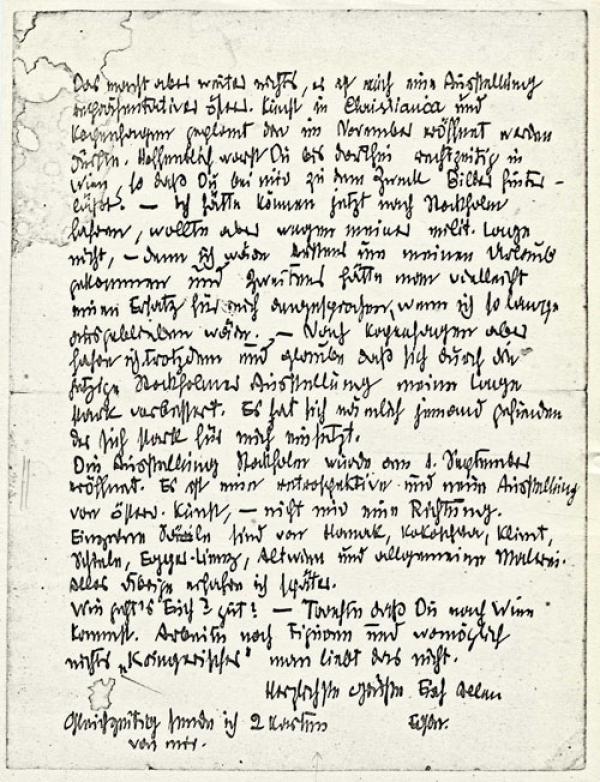 Das macht aber weiter nichts, es ist auch eine Ausstellung
repräsentativer österr. Kunst in Christianca und
Kopenhagen geplant die im November eröffnet werden
dürfte. Hoffentlich warst Du bis dorthin rechtzeitig in
Wien, so daß Du bei mir zu dem Zweck Bilder hinter-
läßt. — Ich hätte können jetzt nach Stockholm
fahren, wollte aber wegen meiner milit. Lage
nicht, — denn ich wäre erstens um meinen Urlaub
gekommen und zweitens hätte man vielleicht
einen Ersatz für mich angesprochen, wenn ich so lange
ausgeblieben wäre. — Nach Kopenhagen aber
fahre ich trotzdem und glaube daß sich durch die
jetzige Stockholmer Ausstellung meine Lage
stark verbessert. Es hat sich nämlich jemand gefunden
der sich stark für mich einsetzt.
Die Ausstellung Stockholm wurde am 1. September
eröffnet. Es ist eine retrospektive und neue Ausstellung
von österr. Kunst, — nicht nur eine Richtung.
Einzelne Säle sind von Hanak, Kokoschka, Klimt,
Schiele, Egger-Lienz, Altwien und allgemeine Malerei.
Alles Übrige erfahre ich später.
Wie geht's Euch? gut! — Trachte daß Du nach Wien
kommst. Arbeite noch Figuren und womöglich
nichts „Kriegerisches“ man liebt das nicht.
Herzlichste Grüße Euch Allen
Gleichzeitig sende ich 2 Karten Egon.
von mir.